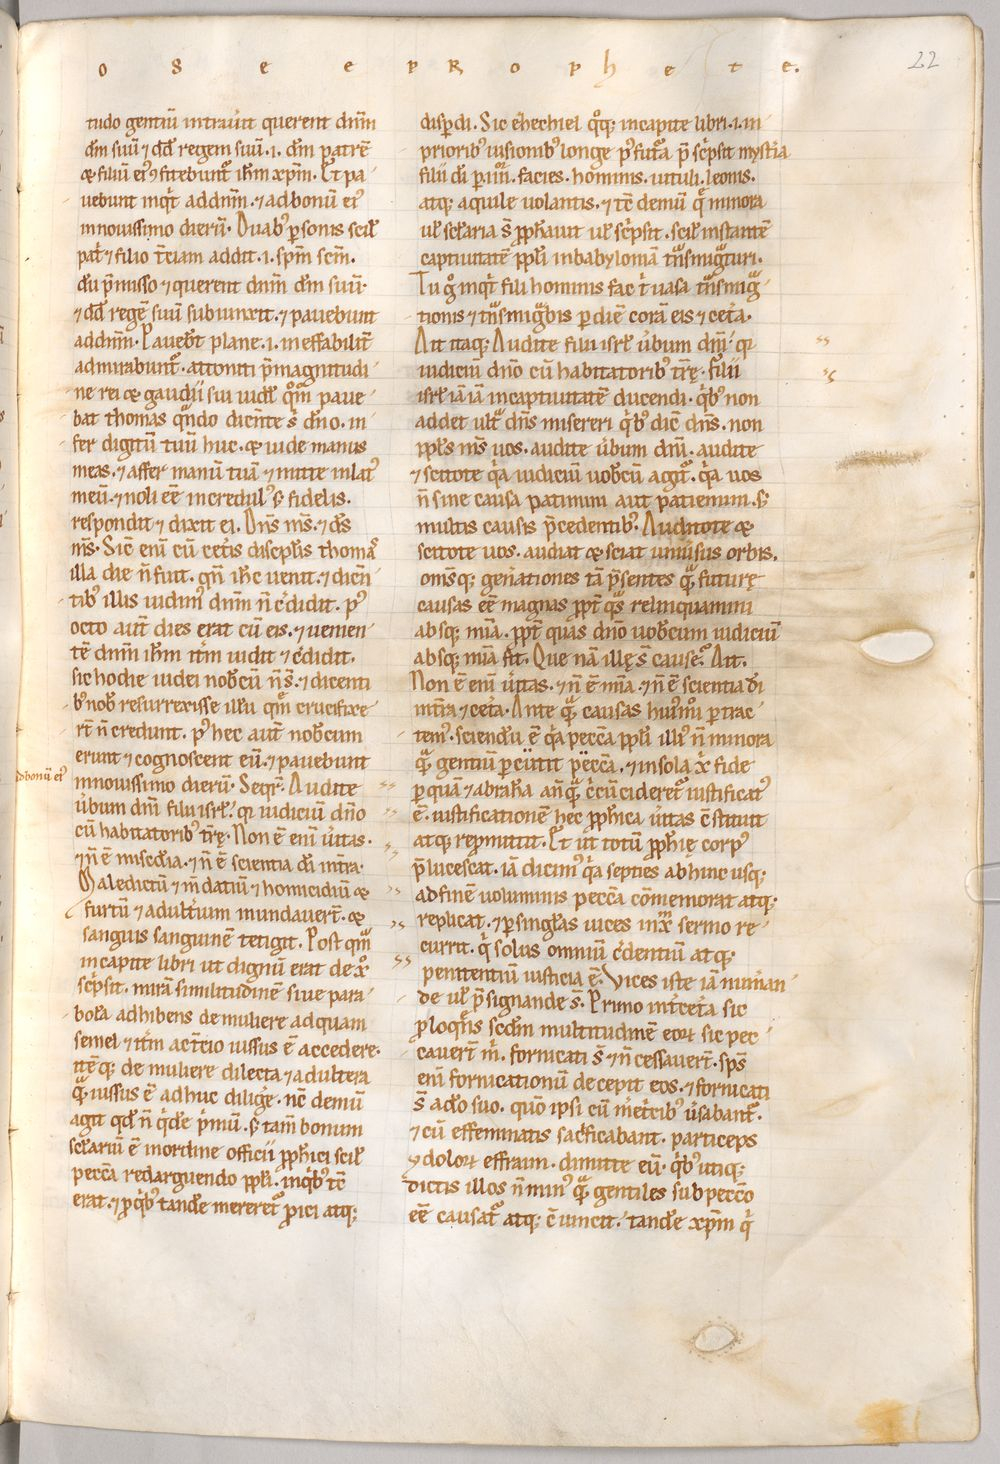 O S E E P R O P h E T E.
22
tudo gentiũ intrauit querent dnm̃
dm̃ suũ ⁊ dd̃ regem suũ .i. dm̃ patrẽ
& filiũ eiꝰ ꝯfitebunt᷑ ihm̃ xpm̃. Et pa
uebunt inqͥt ad dnm̃ . ⁊ ad bonũ eiꝰ
in nouissimo dierũ. Duabꝰ personis scil̃
patͥ ⁊ filio t̃ciam addit .i. spm̃ scm̃.
dũ p̃misso ⁊ querent dnm̃ dm̃ suũ.
⁊ dd̃ regẽ suũ subiunxit . ⁊ pauebunt
ad dnm̃. Pauebt̃ plane .i. ineffabilit̃
admirabunt᷑ . attoniti p̃ magnitudi
ne rei & gaudii sui
bat thomas qͣndo dicente s̃ dño . in
fer digitũ tuũ huc . & uide manus
meas . ⁊ affer manũ tuã ⁊ mitte in latꝰ
meũ . ⁊ noli eẽ incredulꝰ s; fidelis.
respondit ⁊ dixit ei. Dñs m̃s . ⁊ ds̃
m̃s. Sic̃ eni cũ cet̃is discipl̃is thomas
illa die ñ fuit . qñ ihc uenit . ⁊ dicen
tibꝰ illis uidimꝰ dnm̃ ñ c̃didit . pꝰ
octo aut̃ dies erat cũ eis . ⁊ uenien
tẽ dnm̃ ihm̃ it̃m uidit ⁊ c̃didit.
sic hodie iudei nobcũ ñ s̃ . ⁊ dicenti
bꝰ nob̃ resurrexisse illũ qm̃ crucifixe
rt̃ ñ credunt . pꝰ hec aut̃ nobcum
erunt ⁊ cognoscent eũ . ⁊ pauebunt
ad bonũ eiꝰ
in nouissimo dierũ. Seqr̃. Audite
ũbum dnĩ filii isrl̃ . qꝛ iudiciũ dño
cũ habitatoribꝰ tr̃ę. Non ẽ enĩ ũitas.
⁊ ñ ẽ miscdia . ⁊ ñ ẽ scientia dĩ in tr̃a.
Maledictũ ⁊ mdatiũ ⁊ homicidiũ &
furtũ ⁊ adult̃ium inundauer̃t . &
sanguis sanguinẽ tetigit. Post qm̃
in capite libri ut dignũ erat de xͦ
sc̃psit . mirã similitudinẽ siue para
bolã adhibens de muliere ad quam
semel ⁊ it̃m ac t̃cio iussus ẽ accedere.
itẽq; de muliere dilecta ⁊ adultera
qͣ iussus ẽ adhuc dilige͛ . nc̃ demũ
agit qd̃ ñ qͥdẽ p̃mũ . s; tam̃ bonum
scl̃ariũ ẽ in ordine officii ꝓphici scil̃
pecc̃a redarguendo ppl̃i . in qͥbꝰ tc̃
erat . ⁊ ꝓ qͥbꝰ tandẽ mereret᷑ ꝓici atq;
disꝑdi. Sic ezechiel qͦq; in capite libri .i. in
prioribꝰ uisionibꝰ longe pꝰ futͣa p̃ sc̃psit myst̃ia
filii dĩ ꝑ iiii . facies . hominis . uituli . leonis.
atq; aquile uolantis . ⁊ tc̃ demũ qͥ minora
ul̃ scl̃aria s̃ ꝓph̃auit ul̃ sc̃psit . scil̃ instantẽ
captiuitatẽ ppl̃i in babyloniã tͣnsmigͣturi.
Tu gͦ inqͥt fili hominis fac t̃ uasa tͣnsmigͣ
tionis ⁊ tͣnsmigͣbis ꝑ diẽ corã eis ⁊ cet̃a.
Ait itaq; Audite filii isrl̃ ũbum dnĩ . qꝛ
iudiciũ dño cũ habitatoribꝰ tr̃ę. Filii
isrl̃ iã iã in captiuitatẽ ducendi . qͥbꝰ non
addet ultͣ dñs misereri qͥbꝰ dic̃ dñs . non
ppl̃s m̃s uos . audite ũbum dnĩ . audite
⁊ scitote qͥa iudiciũ uobcũ agit᷑ . qͥa uos
ñ sine causa patimini aut patiemini . s;
multis causis p̃cedentibꝰ . Auditote &
scitote uos . audiat & sciat uniũsus orbis.
om̃sq; gen̄ationes tã p̃sentes qͣ futurę
causas eẽ magnas ꝓpt̃ qͣs relinquamini
absq; mĩa . ꝓpt̃ quas dño uobcum iudiciũ
absq; mĩa fit. Que nã illę s̃ cause? Ait.
Non ẽ enĩ ũitas . ⁊ ñ ẽ mĩa . ⁊ ñ ẽ scientia dĩ
in tr̃a ⁊ cet̃a . Ante qͣ causas hui͛mõi ꝑtrac
temꝰ . sciendũ ẽ qͥa pecc̃a ppl̃i illiꝰ ñ minora
qͣ gentiũ ꝑcutit pecc̃a . ⁊ in sola xͥ fide
ꝑ quã ⁊ abrahã añqͣ c̃cũcideret᷑ iustificatꝰ
ẽ . iustificationẽ hec ꝓph̃ica ũitas c̃stituit
atq; repmittit . Et ut totũ ꝓph̃ię corpꝰ
p̃lucescat . iã dicimꝰ qͥa septies ab hinc usq;
ad finẽ uoluminis pecc̃a cõmemorat atq;
replicat . ⁊ ꝑ singl̃as uices in xͫ sermo re
currit . qͥ solus omniũ c̃dentiũ atq;
penitentiũ iusticia ẽ. Vices iste iã nunian
de ul̃ p̃signande s̃. Primo int̃ cet̃a sic
ꝓloqͥt̃is scdm̃ multitudinẽ eoꝝ sic pec
cauer̃t m̃ . fornicati s̃ ⁊ ñ cessauer̃t . sps̃
enĩ fornicationũ decepit eos . ⁊ fornicati
s̃ a dõ suo . quõ ipsi cũ m̃et̃cibꝰ ũsabant᷑.
⁊ cũ effeminatis sac̃ficabant . particeps
ydoloꝝ effraim . dimitte eũ . qͥbꝰ utiq;
dictis illos ñ minꝰ qͣ gentiles sub pecc̃o
eẽ causat᷑ atq; c̃uincit . tandẽ xpm̃ qͥ